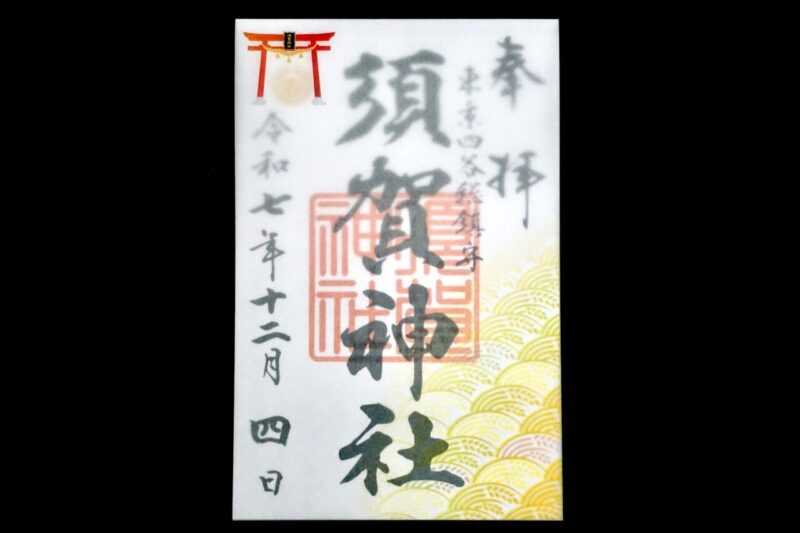 奉拝
東京四谷総鎮守
須賀神社
須賀神社
令和七年十二月四日